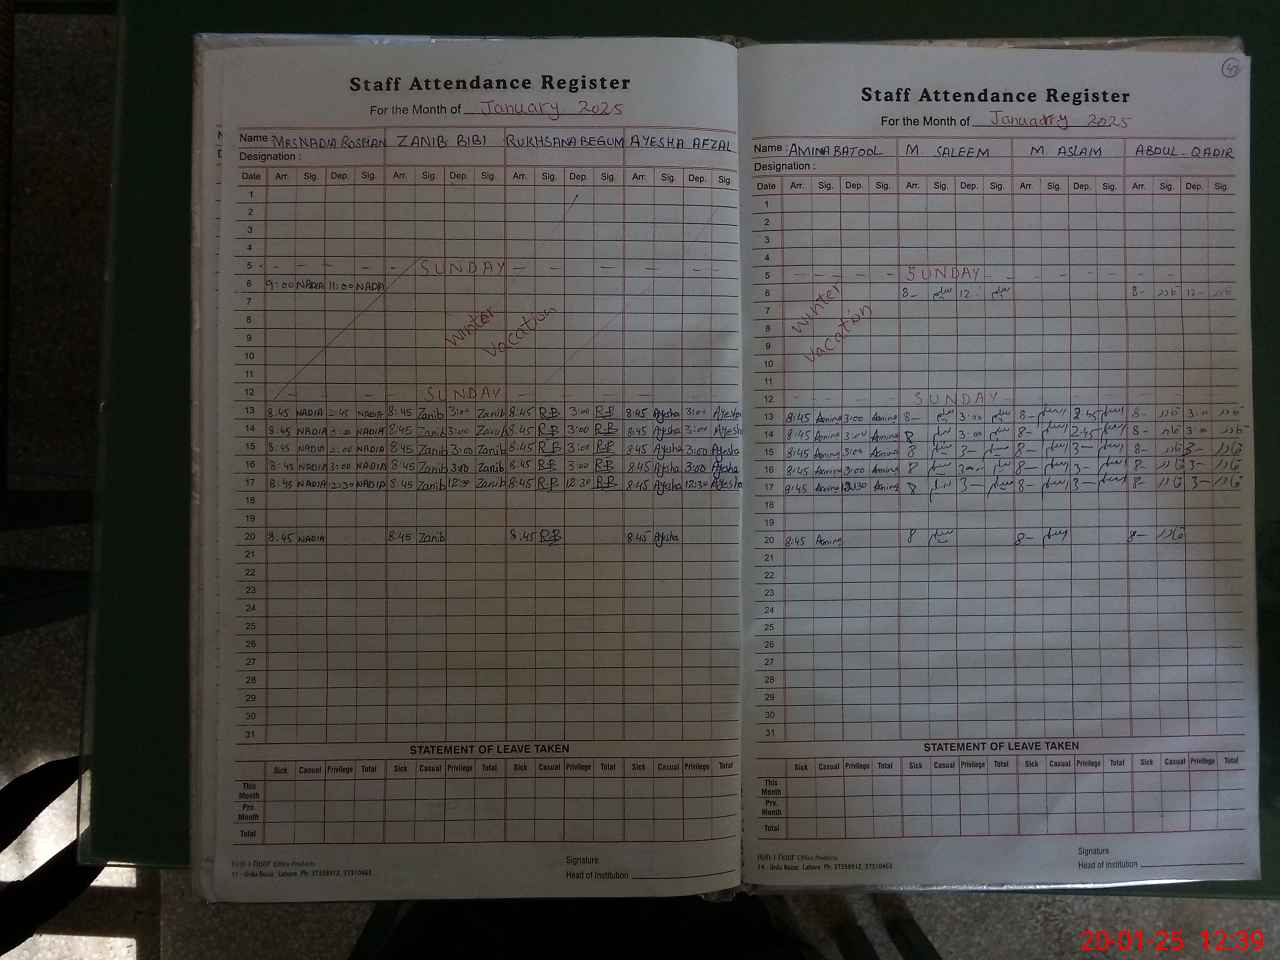 Staff Attendance Register
For the Month of January 2025
Name : MRS NADIA ROSHAN ZANIB BIBI RUKHSANA BEGUM AYESHA AFZAL
Designation :
Date Arr. Sig. Dep. Sig. Arr. Sig. Dep. Sig. Arr. Sig. Dep. Sig. Arr. Sig. Dep. Sig.
1
2
3
4
5 - - - - - SUNDAY - - - - -
6 9:00 NADIA 11:00 NADIA
7
8
9
10
11
Winter
vacation
12 SUNDAY
13 8:45 NADIA 2:45 NADIA 8:45 Zanib 3:00 Zanib 8:45 R.B 3:00 R.B 8:45 Ayesha 3:00 Ayesha
14 8:45 NADIA 3:00 NADIA 8:45 Zanib 3:00 Zanib 8:45 R.B 3:00 R.B 8:45 Ayesha 3:00 Ayesha
15 8:45 NADIA 3:00 NADIA 8:45 Zanib 3:00 Zanib 8:45 R.B 3:00 R.B 8:45 Ayesha 3:00 Ayesha
16 8:45 NADIA 3:00 NADIA 8:45 Zanib 3:00 Zanib 8:45 R.B 3:00 R.B 8:45 Ayesha 3:00 Ayesha
17 8:45 NADIA 12:30 NADIA 8:45 Zanib 12:30 Zanib 8:45 R.B 12:30 R.B 8:45 Ayesha 12:30 Ayesha
18
19
20 8:45 NADIA 8:45 Zanib 8:45 R.B 8:45 Ayesha
21
22
23
24
25
26
27
28
29
30
31
STATEMENT OF LEAVE TAKEN
Sick Casual Privilege Total Sick Casual Privilege Total Sick Casual Privilege Total Sick Casual Privilege Total
This Month
Pre. Month
Total
Office Products
Urdu Bazar, Lahore Ph: 37358912, 37310463
Signature
Head of Institution
Staff Attendance Register
For the Month of January 2025
Name : AMINA BATOOL M. SALEEM M. ASLAM ABDUL-QADIR
Designation :
Date Arr. Sig. Dep. Sig. Arr. Sig. Dep. Sig. Arr. Sig. Dep. Sig. Arr. Sig. Dep. Sig.
1
2
3
4
5 - - - - SUNDAY - - - - -
6 8- سلیم 12 سلیم 8- قادر 12- قادر
7
8
9
10
11
Winter
vacation
12 SUNDAY
13 8:45 Amina 3:00 Amina 8- سلیم 3:00 سلیم 8- اسلم 2:45 اسلم 8- قادر 3:00 قادر
14 8:45 Amina 3:00 Amina 8 سلیم 3:00 سلیم 8- اسلم 2:45 اسلم 8- قادر 3:00 قادر
15 8:45 Amina 3:00 Amina 8 سلیم 3- سلیم 8- اسلم 3- اسلم 8- قادر 3- قادر
16 8:45 Amina 3:00 Amina 8 سلیم 3:00 سلیم 8- اسلم 3- اسلم 8- قادر 3- قادر
17 8:45 Amina 12:30 Amina 8 سلیم 3- سلیم 8- اسلم 3- اسلم 8- قادر 3- قادر
18
19
20 8:45 Amina 8 سلیم 8- اسلم 8- قادر
21
22
23
24
25
26
27
28
29
30
31
STATEMENT OF LEAVE TAKEN
Sick Casual Privilege Total Sick Casual Privilege Total Sick Casual Privilege Total Sick Casual Privilege Total
This Month
Pre. Month
Total
Office Products
Urdu Bazar, Lahore Ph: 37358912, 37310463
Signature
Head of Institution
20-01-25 12:39